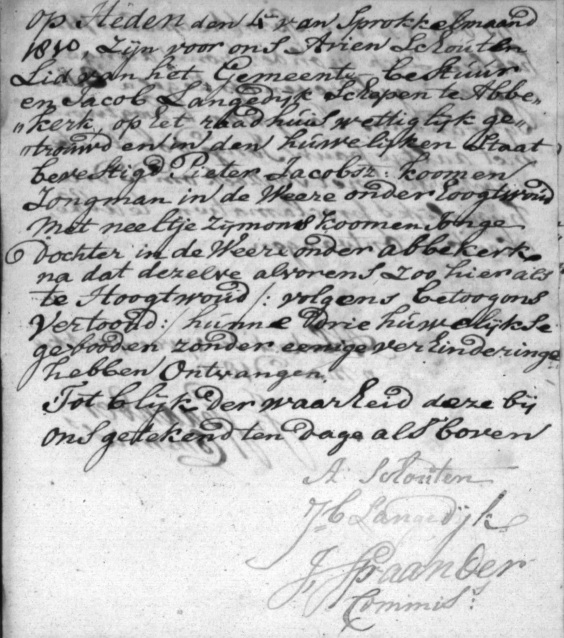 Op Heden den 4e van Sprokkelmaand
1810, Zijn voor ons Arien Schouten
Lid van het Gemeente bestuur
en Jacob Langedijk Schepen te Abbe„
„kerk, op het raadhuis wettiglijk ge„
„trouwd en in den huwelijken Staat
bevestigd Pieter Jacobsz: koomen
Jongman in de Weere onder Hoogtwoud
Met neeltje Zijmons koomen Jonge
Dochter in de Weere onder abbekerk
na dat dezelve alvorens, Zoo hier als
te Hoogtwoud /: volgens betoogons
Vertoond:/ hunne drie huwelijkse
gebooden zonder eenige verhinderinge
hebben Ontvangen.
Tot blijk der waarheid deze bij
ons getekend ten dage als boven
A: Schouten
Jb Langedijk
J, Spaander
Commis: